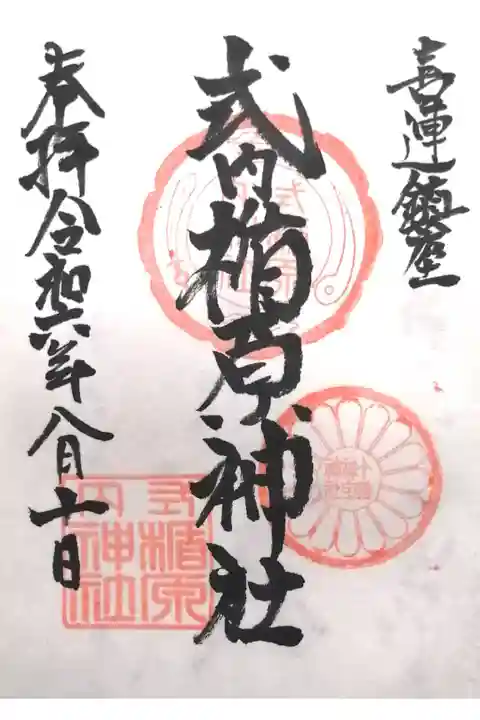 喜連鎮座
式内楯原神社
奉拝令和六年八月十日
式内楯原神社